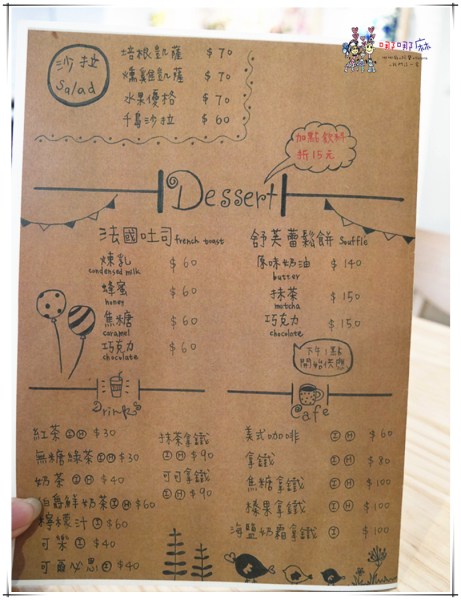 沙拉
Salad
培根凱薩 $70
燻雞凱薩 $70
水果優格 $70
千島沙拉 $60
加點飲料
折15元
Dessert
法國吐司 french toast
煉乳 $60
condensed milk
蜂蜜 $60
honey
焦糖 $60
caramel
巧克力 $60
chocolate
舒芙蕾鬆餅 Souffle
原味奶油 $140
butter
抹茶 $150
matcha
巧克力 $150
chocolate
下午1點
開始供應
Drinks
紅茶 I H $30
無糖綠茶 I H $30
奶茶 I H $40
伯爵鮮奶茶 I H $60
檸檬汁 I $60
可樂 I $40
可爾必思 I $40
抹茶拿鐵
I H $90
可可拿鐵
I H $90
Cafe
美式咖啡 I H $60
拿鐵 I H $80
焦糖拿鐵 I H $100
榛果拿鐵 I H $100
海鹽奶霜拿鐵 I $100